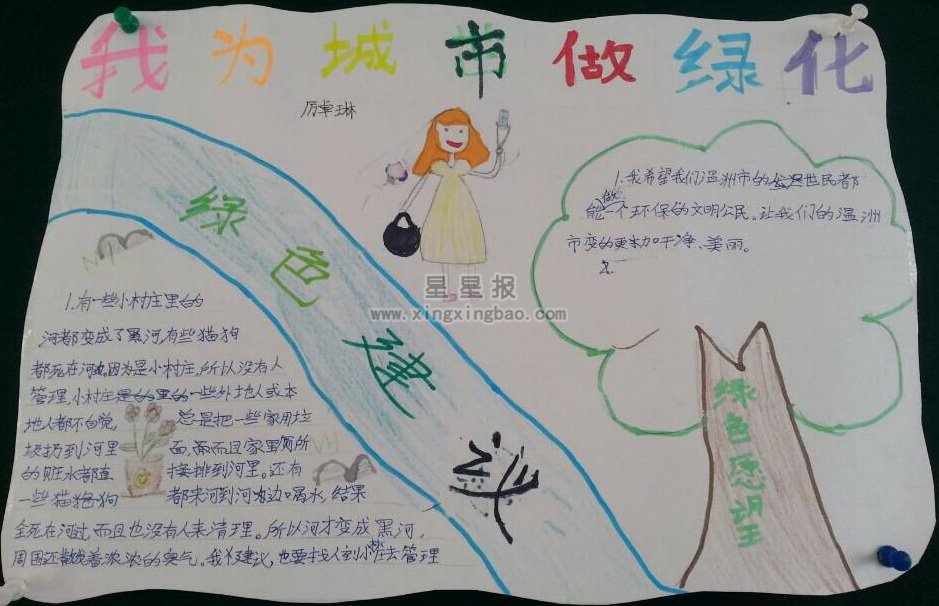 我为城市做绿化
厉卓琳
绿色建议
1.有一些小村庄里的
河都变成了黑河,有些猫狗
都死在河边,因为是小村庄,所以没有人
管理,小村庄里的一些外地人或本
地人都不自觉,总是把一些家用垃
圾扔到河里面,而且家里厕所
的脏水都直接排到河里。还有
一些猫狗都来河到河边喝水,结果
全死在河边,而且也没有人来清理。所以河才变成黑河,
周围还散发着浓浓的臭气。我建议,也要找人到小村庄去管理
1.我希望我们温洲市的世民都
能做一个环保的文明公民。让我们的温洲
市变的更加干净、美丽。
2.
绿色愿望
星星报
www.xingxingbao.com